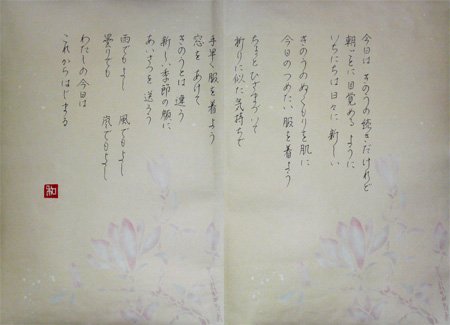 今日は きのうの続きだけれど
朝ごとに目覚める ように
いちにちは日々に 新しい
きのうのぬくもりを肌に
今日のつめたい 服を着よう
ちょっと ひざまづいて
祈りに似た気持ちで
手早く服を着よう
窓を あけて
きのうとは 違う
新しい季節の顔に
あいさつを 送ろう
雨でもよし 風でもよし
曇りでも 凪でもよし
わたしの今日は
これからはじまる
和